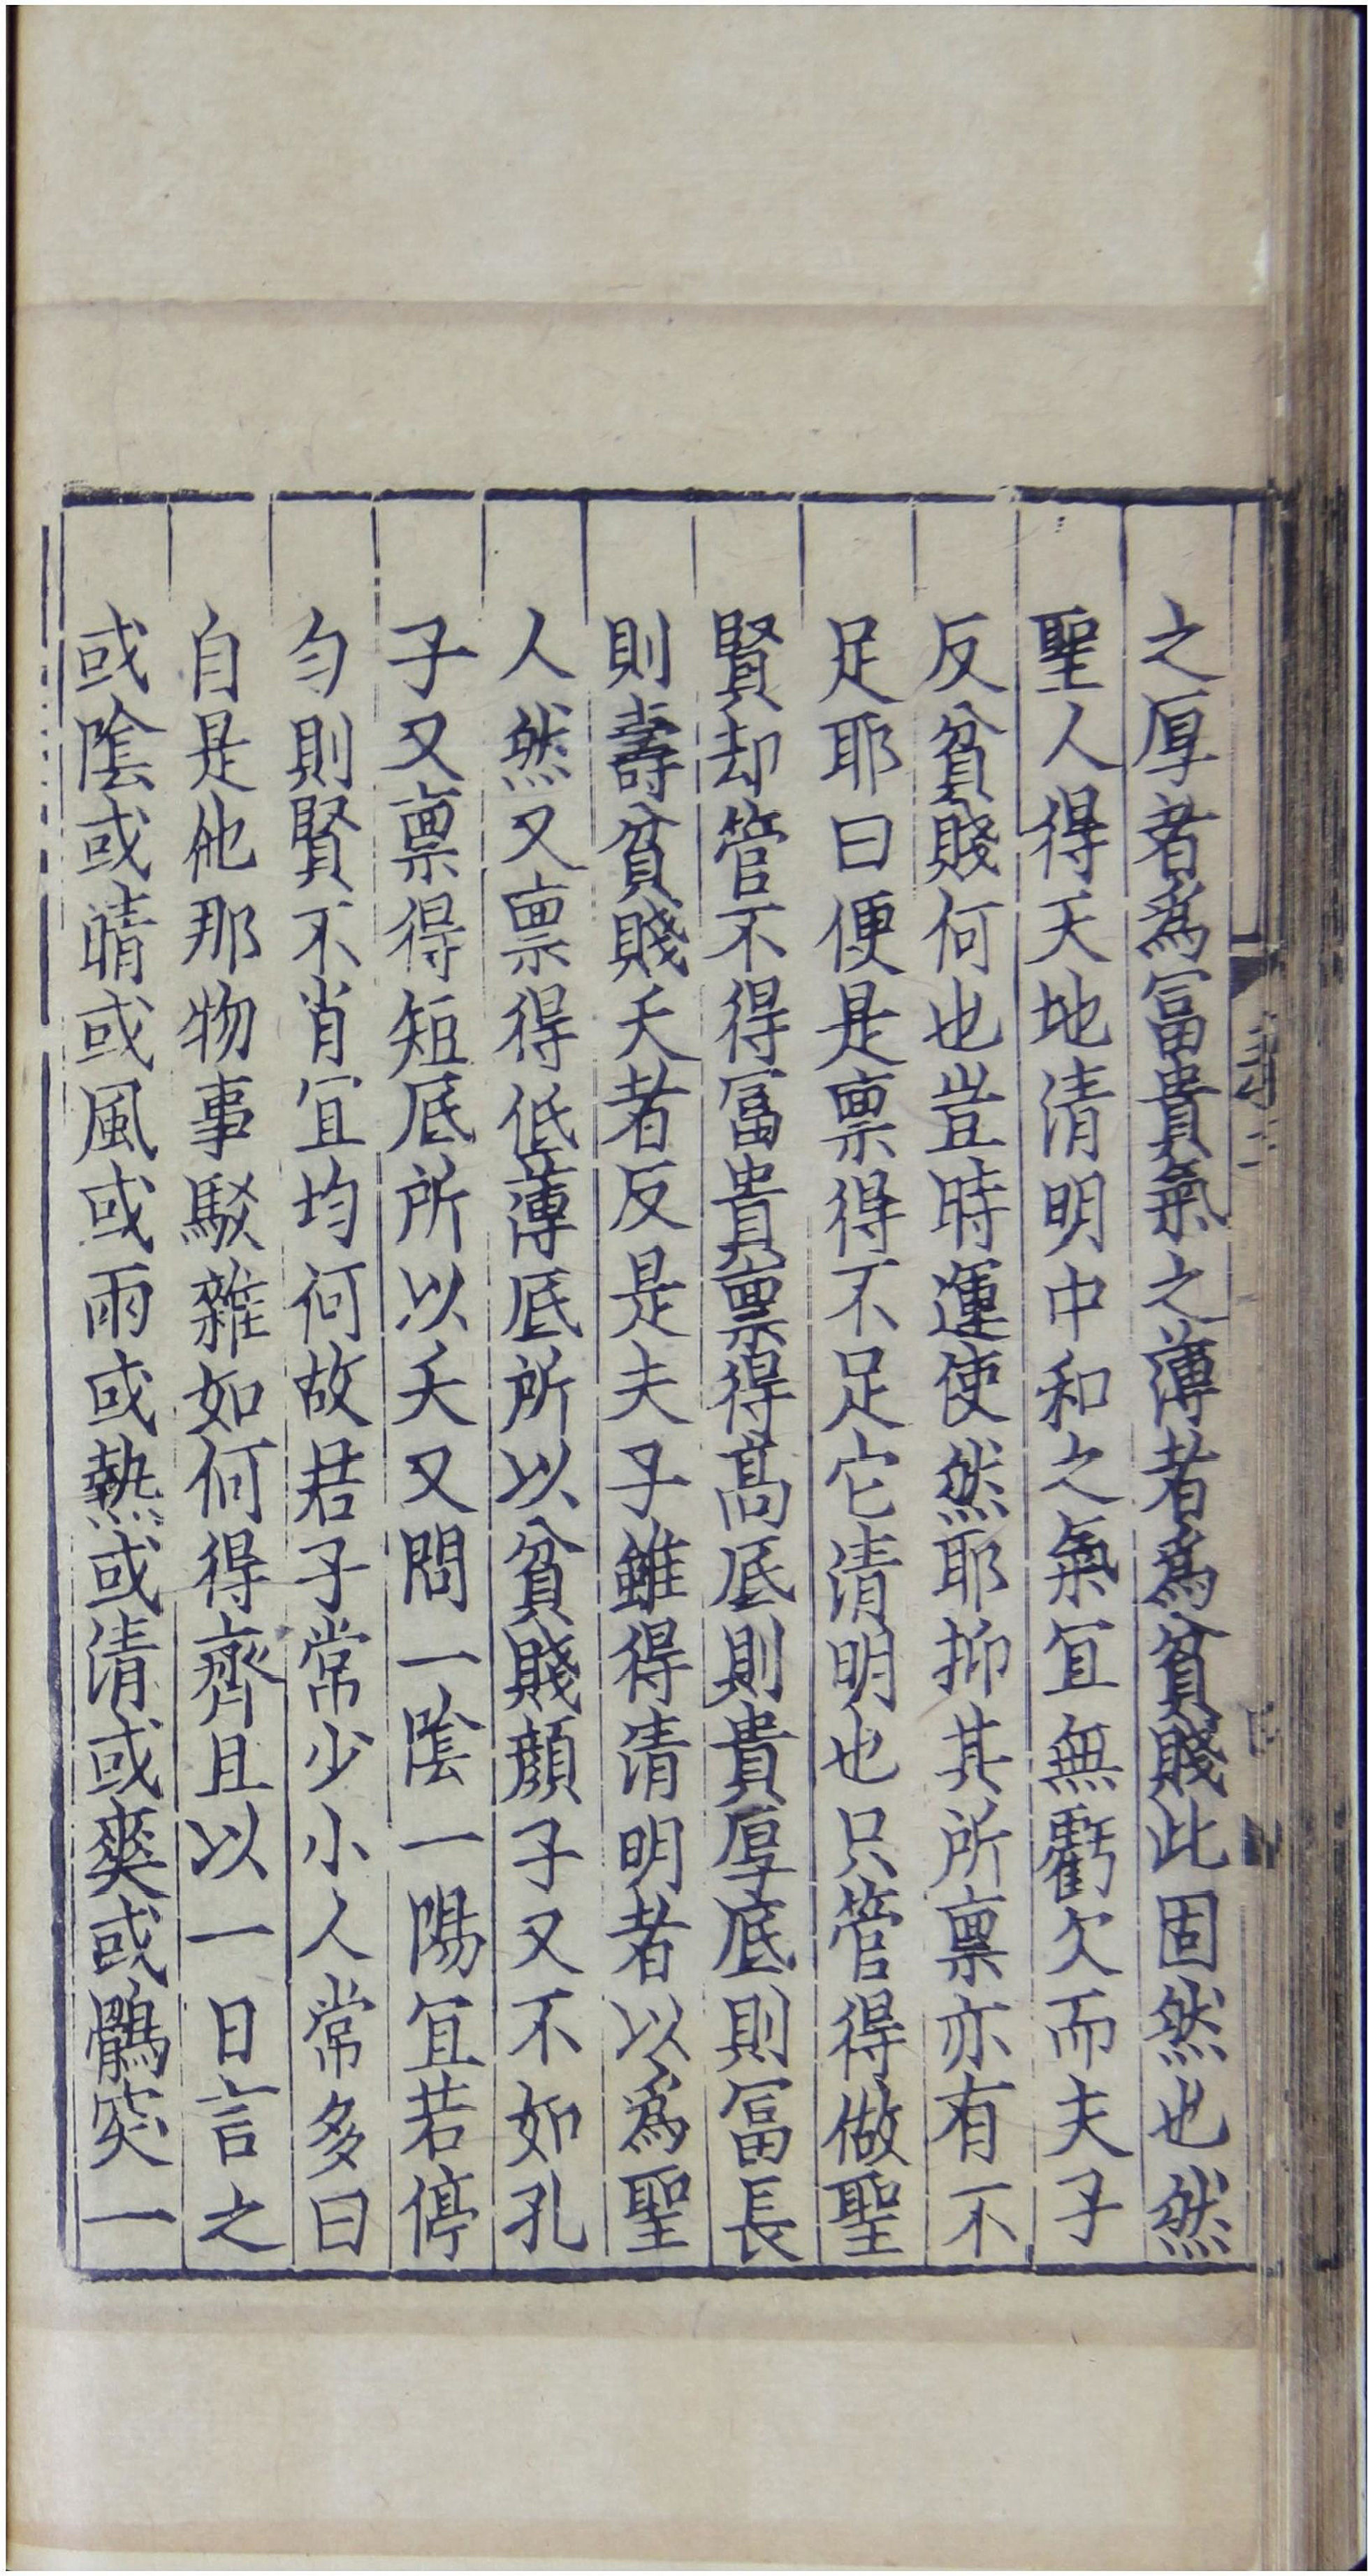 之厚者為冨貴氣之薄者為貧賤此固然也然
聖人得天地清明中和之氣宜無虧欠而夫子
反貧賤何也豈時運使然耶抑其所禀亦有不
足耶曰便是禀得不足它清明也只管得做聖
賢却管不得冨貴禀得髙底則貴厚底則冨長
則壽貧賤夭者反是夫子雖得清明者以為聖
人然又禀得低薄底所以貧賤顔子又不如孔
子又禀得短底所以夭又問一陰一陽宜若停
匀則賢不肖宜均何故君子常少小人常多曰
自是他那物事駁雜如何得齊且以一日言之
或陰或晴或風或雨或熱或清或爽或鶻突一